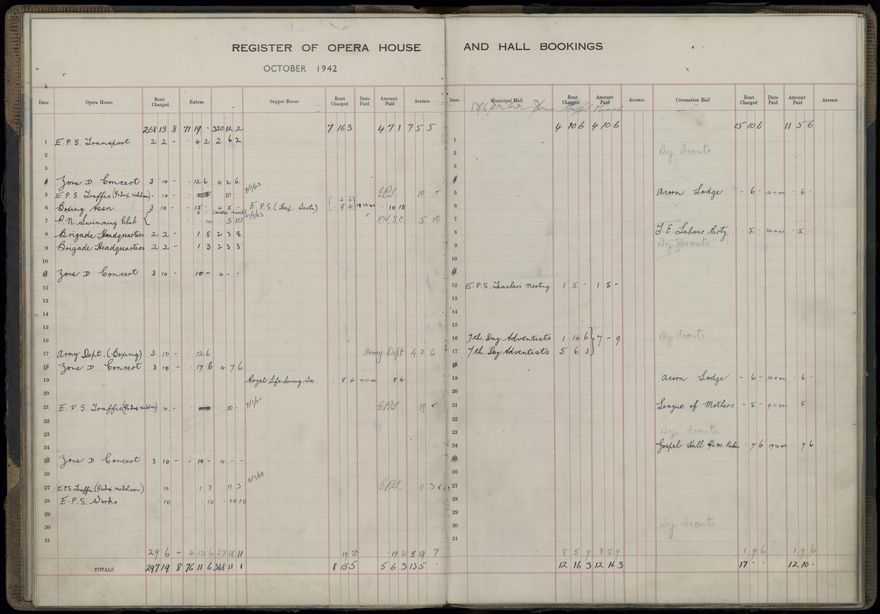 REGISTER OF OPERA HOUSE AND HALL BOOKINGS
OCTOBER 1942
Date Opera House Rent Charged Extras Supper Room Rent Charged Date Paid Amount Paid Arrears Date Municipal Hall Rent Charged Amount Paid Arrears Coronation Hall Rent Charged Date Paid Amount Paid Arrears
268 13 8 71 19 - 320 12 2 7 16 3 4 7 1 7 5 5 4 10 6 4 10 6 15 10 6 11 5 6
1 E.P.S. Transport 2 2 - 4 2 2 6 2 1
2 2 Boy Scouts
3 3
4 Zone D Concert 3 10 - 12 6 4 2 6 4
5 E.P.S. Traffic 10 - 10 - EPS 10 5 Acorn Lodge - 6 - - 6 -
6 Boxing Assn. 3 10 - 15 - E.P.S. 2 6 8 4 10 10 6
7 P.N. Swimming Club 10 5 10 P.N.S.C 5 10 7
8 Brigade Headquarters 2 2 - 1 8 2 3 8 8 T.E. Labour Party - 5 - 5
9 Brigade Headquarters 2 2 - 1 3 2 3 3 9 Boy Scouts
10 10
11 Zone D Concert 3 10 - 10 - 4 - - 11
12 12 E.P.S. Teachers Meeting 1 5 - 1 5 -
13 13
14 14
15 15
16 16 7th Day Adventists 1 14 6 7 - 9 Boy Scouts
17 Army Dept. (Boxing) 3 10 - 12 6 Army Dept 4 2 6 17 7th Day Adventists 5 6 3
18 Zone D Concert 3 10 - 17 6 4 7 6 18
19 Royal Life Saving So. 8 4 8 4 19 Acorn Lodge - 6 - - 6 -
20 20
21 E.P.S. Traffic 10 - 10 - EPS 10 21 League of Mothers - 5 - - 5
22 22
23 23 Boy Scouts
24 24 Gospel Hall 7 6 - 7 6
25 Zone D Concert 3 10 - 10 - 4 - - 25
26 26
27 E.P.S. Traffic 10 1 3 11 3 EPS 11 3 27
28 E.P.S. Works 10 10 10 10 28
29 29
30 30 Boy Scouts
31 31
29 6 - 4 12 6 8 5 9 8 5 9 1 9 6 1 9 6
TOTALS 297 19 8 76 11 6 348 11 1 8 15 5 5 6 3 13 5 - 12 16 3 12 16 3 17 - - 12 10 -